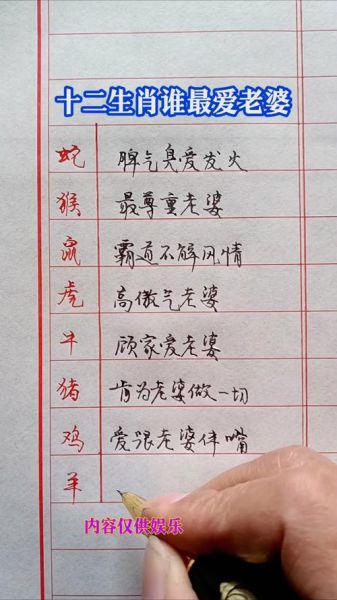 十二生肖谁最爱老婆
蛇 脾气臭爱发火
猴 最尊重老婆
鼠 霸道不解风情
虎 高傲气老婆
牛 顾家爱老婆
猪 肯为老婆做一切
鸡 爱跟老婆伴嘴
羊
内容仅供娱乐